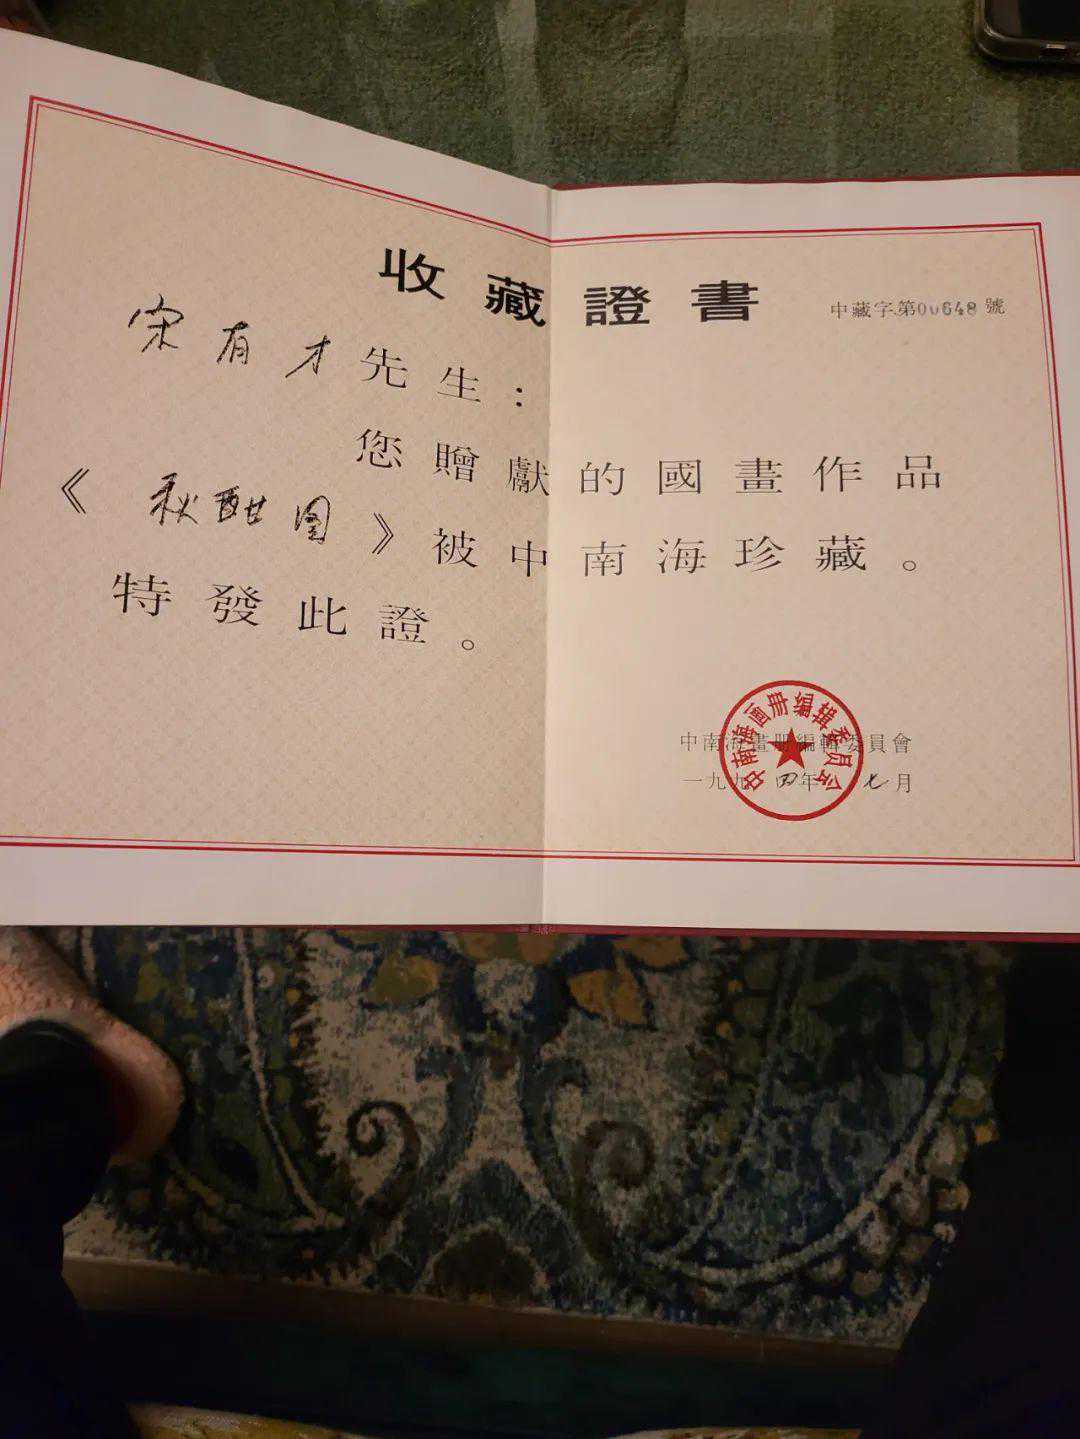 收藏證書
中藏字第00648號
宋有才先生：
您贈獻的國畫作品
《秋酣图》被中南海珍藏。
特發此證。
中南海畫册編輯委員會
一九九四年七月
中南海画册编辑委员会